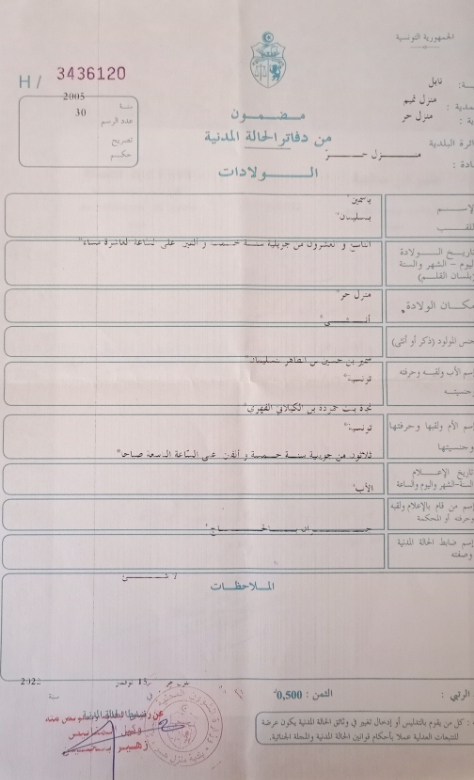 الجمهورية التونسية
H / 3436120
نابل
منزل تميم
منزل حر
سنة 2005
عدد الرسم 30
تصريح
حكم
مضمون
من دفاتر الحالة المدنية
منزل حر
الولادات
ياسمين"
بسليمان"
التاسع و العشرون من جويلية سنة خمسة و ألفين على الساعة العاشرة مساء"
تاريخ الولادة
اليوم - الشهر والسنة
(بلسان القلم)
منزل حر"
مكان الولادة
أنثى"
جنس المولود (ذكر أو أنثى)
سمير بن حسين بن الطاهر بسليمان"
إسم الأب ولقبه وحرفته
تونسية"
وجنسيته
نجاة بنت حمودة بن الكيلاني الفهري"
إسم الأم ولقبها وحرفتها
تونسية"
وجنسيتها
ثلاثون من جويلية سنة خمسة و ألفين على الساعة التاسعة صباحا"
تاريخ الإعلام
السنة-الشهر واليوم والساعة
الأب"
إسم من قام بالإعلام ولقبه
وحرفته أو المحكمة
إسم ضابط الحالة المدنية
وصفته
الملاحظات
نوفمبر
سنة
الثمن : 0,500د
عن ضابط الحالة المدنية
زهير
كل من يقوم بالتدليس أو إدخال تغيير في وثائق الحالة المدنية يكون عرضة
للتتبعات العدلية عملا بأحكام قوانين الحالة المدنية والمجلة الجنائية.